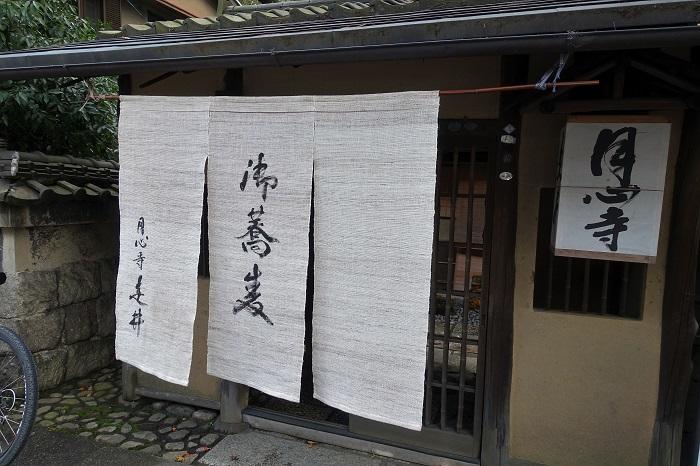 御蕎麦
月心寺走井
月心寺